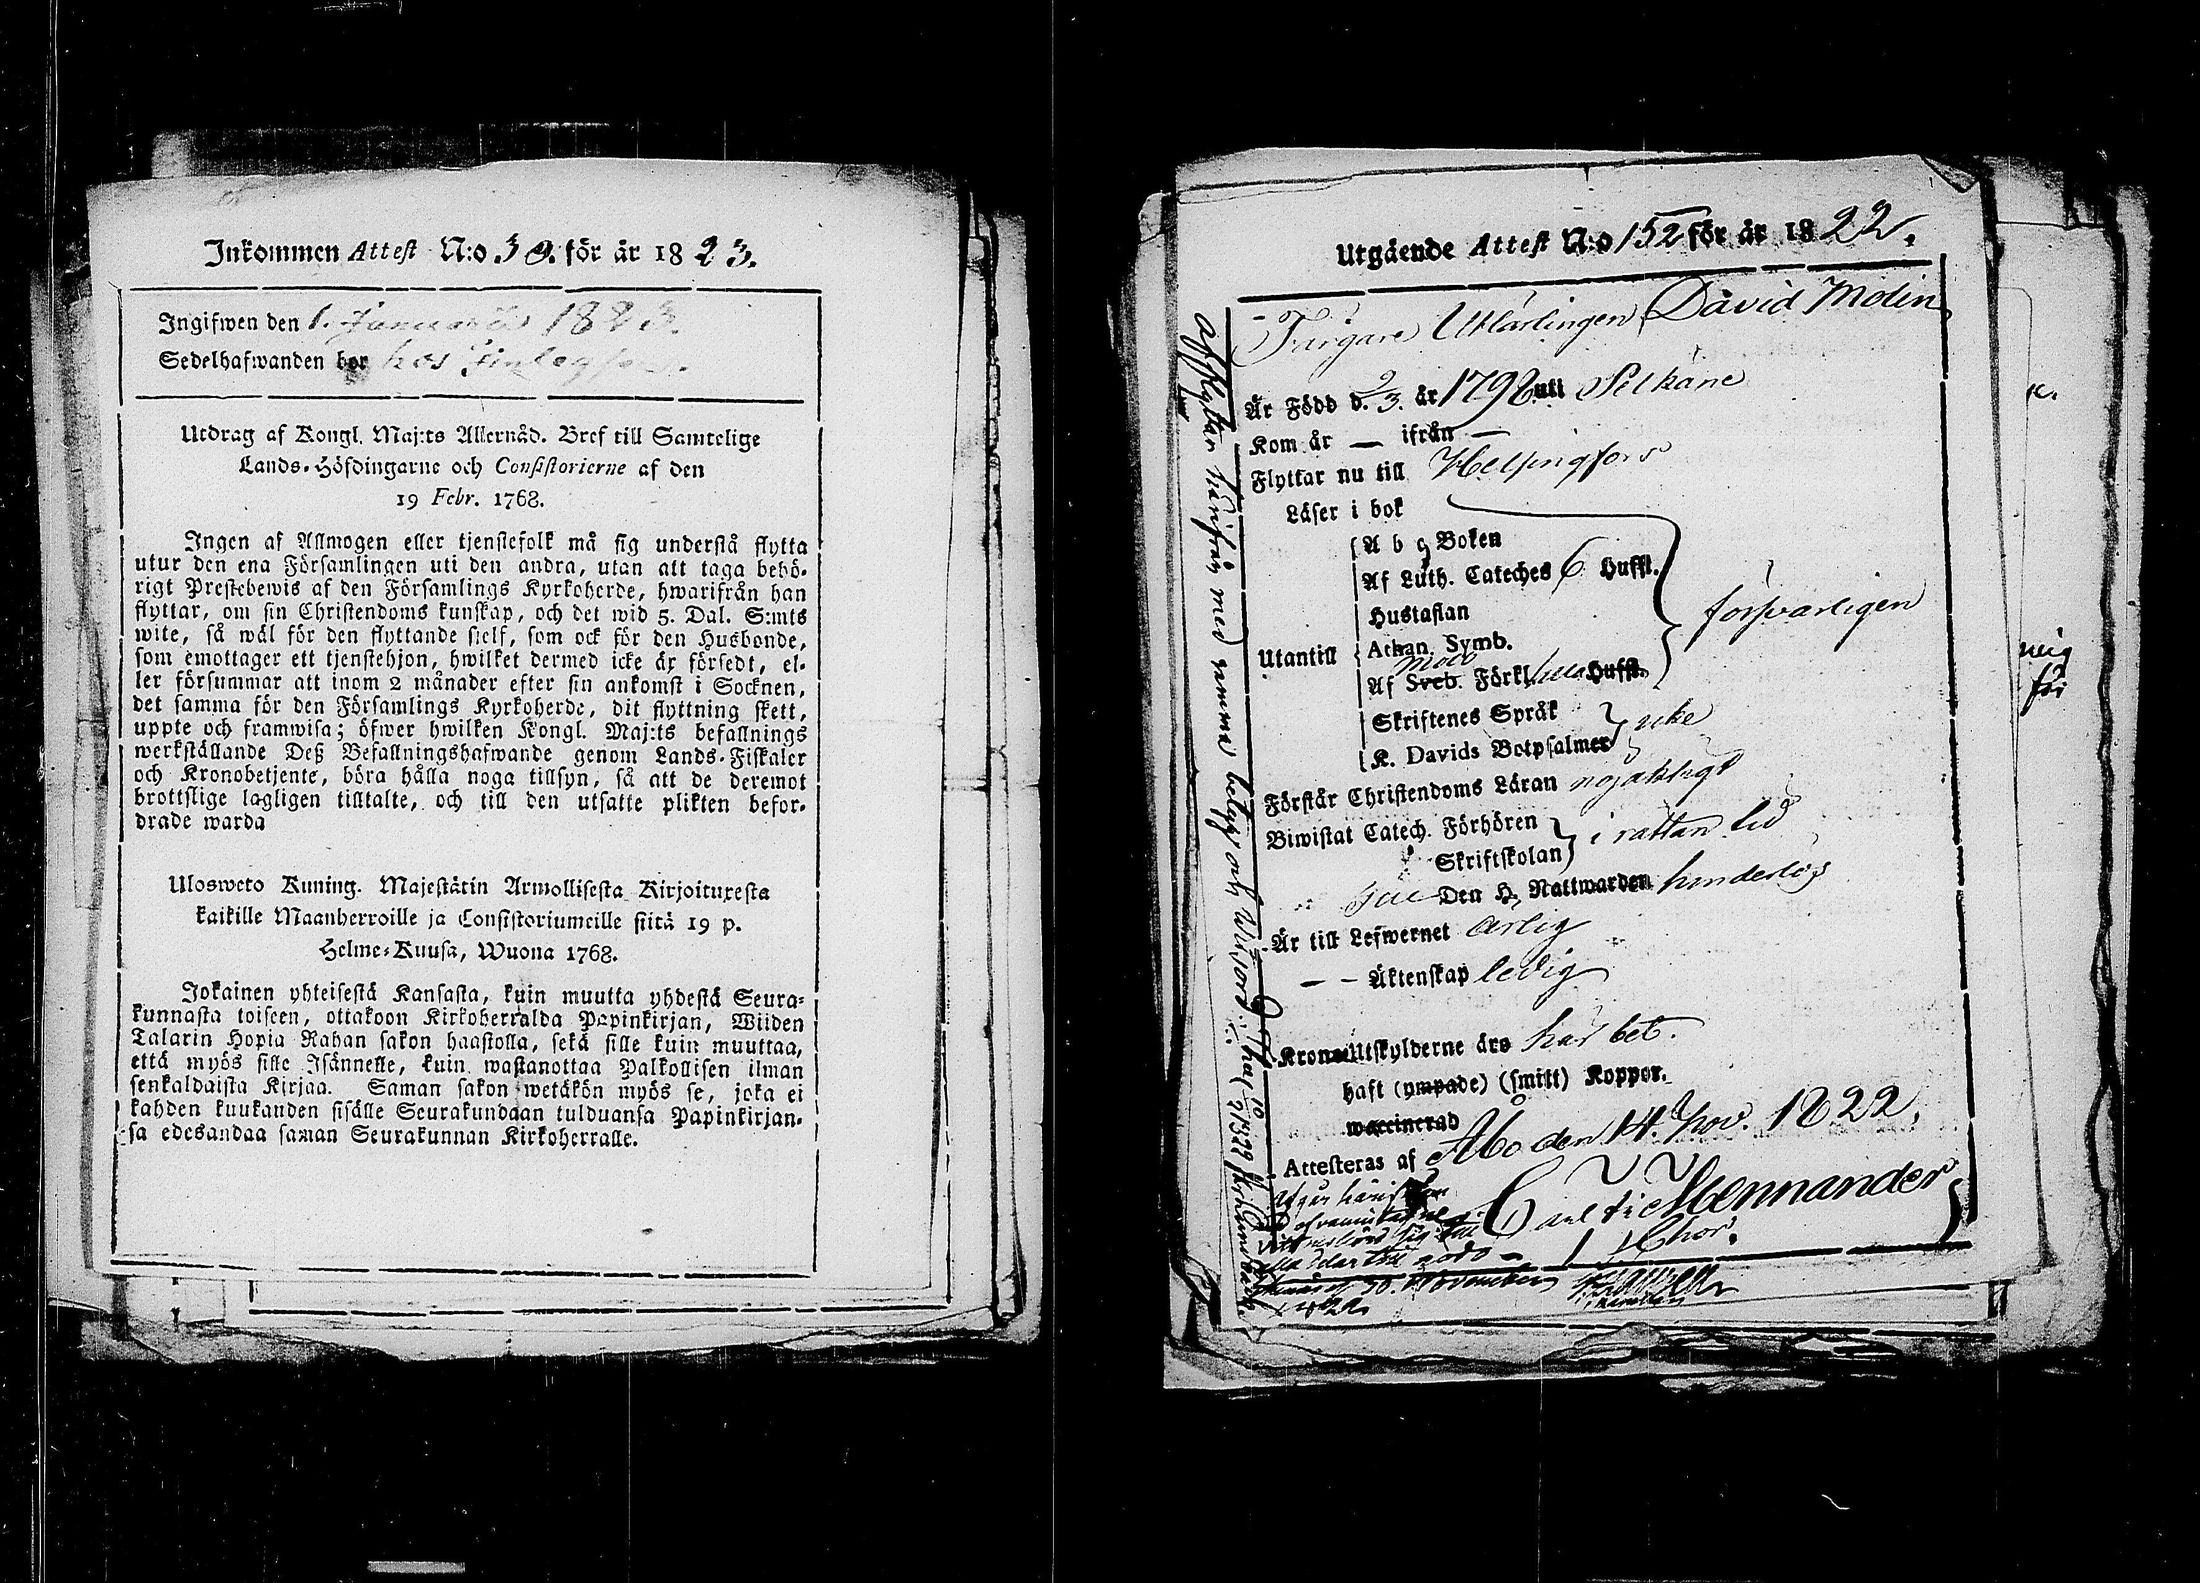 Inkommen Attest N:o 30. för år 1823.
Ingifwen den 1. Januarii 1823.
Sedelhafwanden bor hos
Utdrag af Kongl. Maj:ts Allernåd. Bref till Samtelige
Lands-Höfdingarne och Consistorierne af den
19 Febr. 1768.
Ingen af Allmogen eller tjenstefolk må sig understå flytta
utur den ena Församlingen uti den andra, utan att taga behö-
rigt Prestebewis af den Församlings Kyrkoherde, hwarifrån han
flyttar, om sin Christendoms kunskap, och det wid 5. Dal. S:mts
wite, så wäl för den flyttande sielf, som ock för den Husbonde,
som emottager ett tjenstehjon, hwilket dermed icke är försedt, el-
ler försummar att inom 2 månader efter sin ankomst i Socknen,
det samma för den Församlings Kyrkoherde, dit flyttning skett,
uppte och framwisa; öfwer hwilken Kongl. Maj:ts befallnings
werkställande Deß Befallningshafwande genom Lands-Fiskaler
och Kronobetjente, böra hålla noga tillsyn, så att de deremot
brottslige lagligen tilltalte, och till den utsatte plikten befor-
drade warda
Ulosweto Kuning. Majestätin Armollisesta Kirjoituxesta
kaikille Maanherroille ja Consistoriumeille siitä 19 p.
Helme-Kuusa, Wuona 1768.
Jokainen yhteisestä Kansasta, kuin muutta yhdestä Seura-
kunnasta toiseen, ottakoon Kirkoherralda Papinkirjan, Wiiden
Talarin Hopia Rahan sakon haastolla, sekä sille kuin muuttaa,
että myös sille Isännelle, kuin wastanottaa Palkollisen ilman
senkaldaista Kirjaa. Saman sakon wetäkön myös se, joka ei
kahden kuukanden sisälle Seurakundaan tulduansa Papinkirjan-
sa edesandaa saman Seurakunnan Kirkoherralle.
Utgående Attest N:o 152 för år 1822.
Färgare Utlärlingen David Molin
Är Född d. 2/3. år 1798 uti Pelkäne
Kom år — ifrån —
Flyttar nu till Helsingfors
Läser i bok
A b c Boken
Af Luth. Cateches 6 Hufst.
Hustaflan
försvarligen
Utantill Athan. Symb.
Af Sveb. Förkl. Hufst.
Skriftenes Språk
K. Davids Botpsalmer icke
Förstår Christendoms Läran nöjaktigt
Biwistat Catech. Förhören
Skriftskolan i rättan tid
Den H. Nattwarden hinderlös
Är till Lefwernet ärlig
— — Äktenskap ledig
Krono-Utskylderne äro har bet.
haft (ympade) (smitt) Koppor.
waccinerad
Attesteras af Åbo den 14. Nov. 1822.
Carl Fr. Mennander
Afflyttar härifrån med samma betyg och
30. November
1822